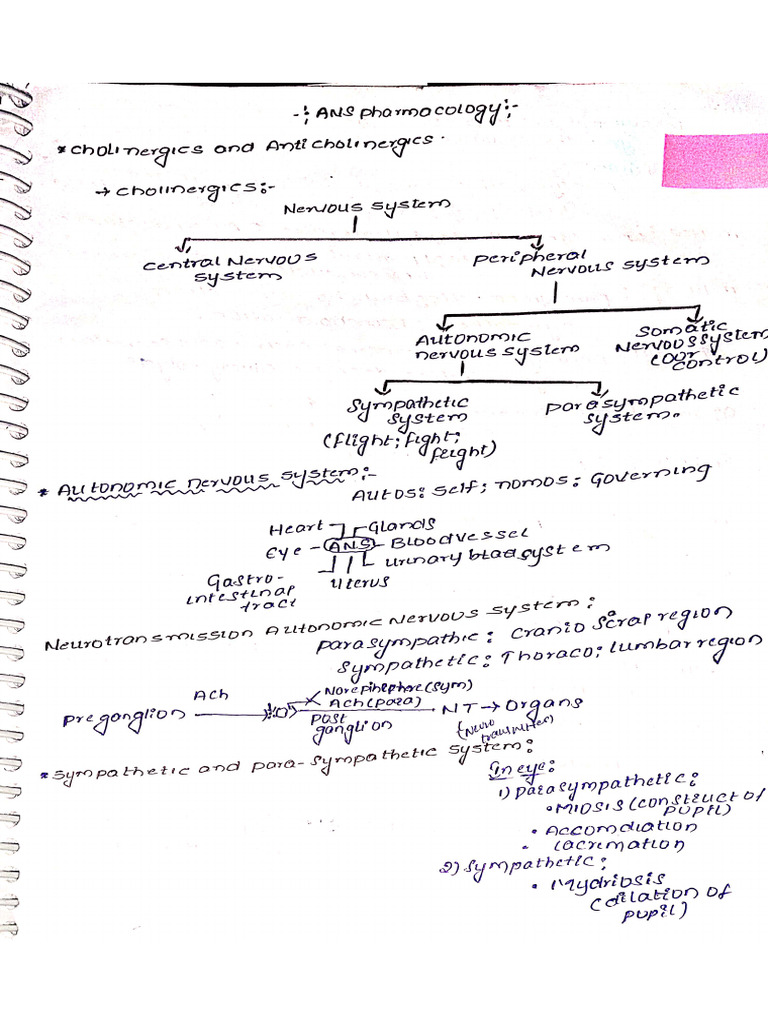 -:ANS pharmacology:-
*Cholinergics and Anticholinergics.
→ Cholinergics:-
Nervous system
Central Nervous system
Peripheral Nervous system
Autonomic nervous system
Somatic Nervous system (our control)
Sympathetic system (flight; fight; feight)
Parasympathetic system.
* Autonomic nervous system:-
Autos: self; nomos: Governing
Heart Glands
Eye - ANS - Bloodvessel
Urinary blad system
Gastro-intestinal tract
Uterus
Neurotransmission Autonomic Nervous System:
Parasympathic: Cranio Scrap region
Sympathetic: Thoraco; Lumbar region
Ach
Norepihephere (sym)
Ach (para)
Preganglion
Post ganglion
NT → Organs
(Neuro transmitter)
*Sympathetic and para-sympathetic system:
In eye:
1) Parasympathetic:
• Miosis (construct of pupil)
• Accomdiation
• lacremation
2) Sympathetic:
• Mydriosis
(dilation of pupil)